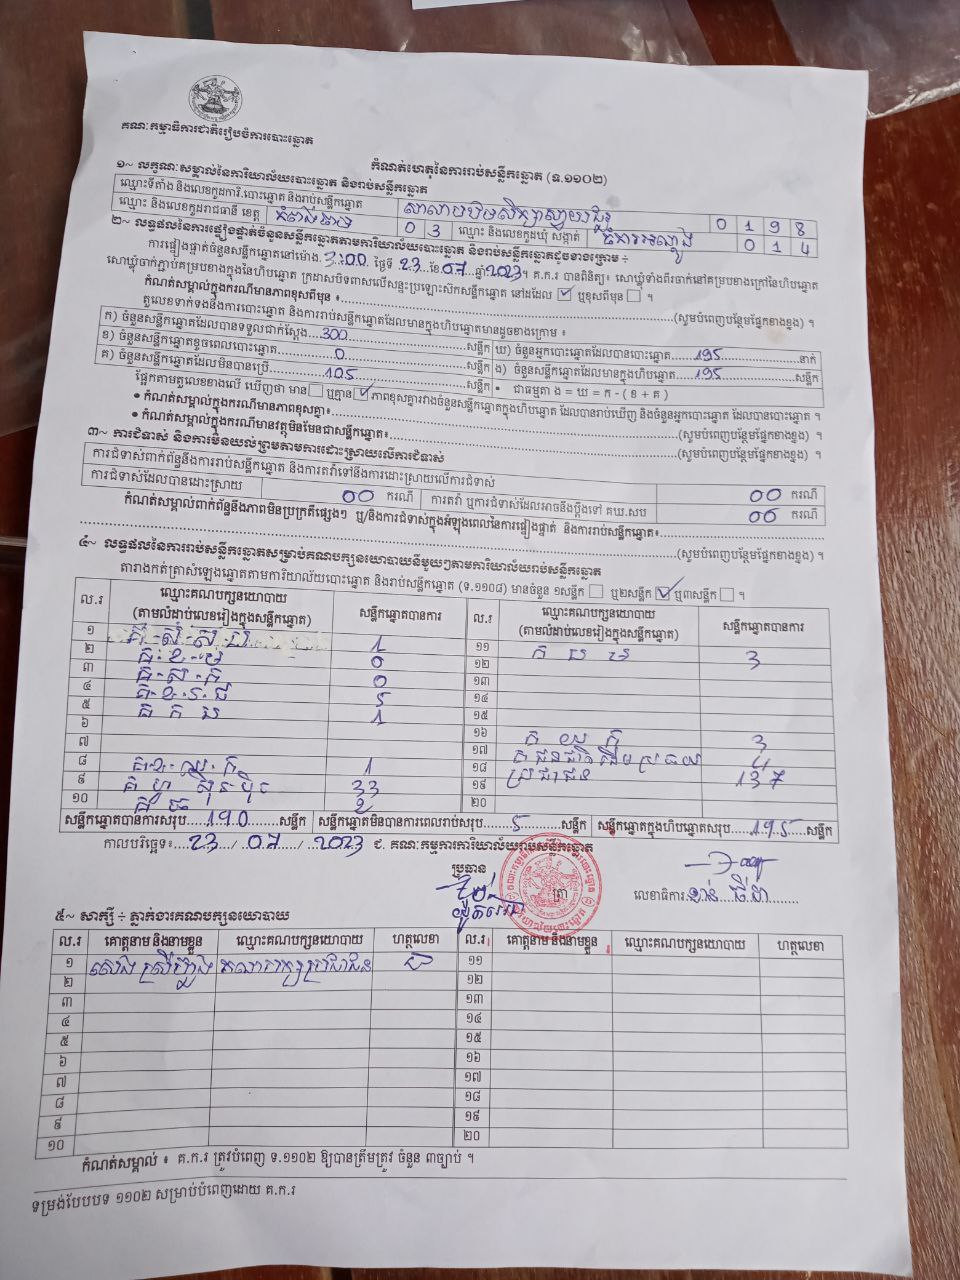 គណៈកម្មាធិការជាតិរៀបចំការបោះឆ្នោត
កំណត់ហេតុនៃការរាប់សន្លឹកឆ្នោត (ទ.១១០២)
១~ លក្ខណៈសម្គាល់នៃការិយាល័យបោះឆ្នោត និងរាប់សន្លឹកឆ្នោត
ឈ្មោះទីតាំង និងលេខកូដការិ.បោះឆ្នោត និងរាប់សន្លឹកឆ្នោត 0 1 9 8
ឈ្មោះ និងលេខកូដរាជធានី ខេត្ត កំពង់ចាម 0 3 ឈ្មោះ និងលេខកូដឃុំ សង្កាត់ 0 1 4
២~ លទ្ធផលនៃការផ្ទៀងផ្ទាត់ចំនួនសន្លឹកឆ្នោតតាមការិយាល័យបោះឆ្នោត និងរាប់សន្លឹកឆ្នោតដូចខាងក្រោម ÷
ការផ្ទៀងផ្ទាត់ចំនួនសន្លឹកឆ្នោតនៅម៉ោង 3:00 ថ្ងៃទី 23 ខែ 07 ឆ្នាំ 2023។ គ.ក.រ បានពិនិត្យ៖ សោឃ្លុំទាំងពីរចាក់នៅគម្របខាងក្រៅនៃហិបឆ្នោត
សោឃ្លុំចាក់ភ្ជាប់គម្របខាងក្នុងនៃហិបឆ្នោត ក្រដាសបិទពាសលើសន្ទះប្រឡោះសិកសន្លឹកឆ្នោត នៅដដែល ✓ ឬខុសពីមុន ។
កំណត់សម្គាល់ក្នុងករណីមានភាពខុសពីមុន ៖ (សូមបំពេញបន្ថែមផ្នែកខាងខ្នង) ។
តួលេខទាក់ទងនឹងការបោះឆ្នោត និងការរាប់សន្លឹកឆ្នោតដែលមានក្នុងហិបឆ្នោតមានដូចខាងក្រោម ៖
ក) ចំនួនសន្លឹកឆ្នោតដែលបានទទួលជាក់ស្តែង 300 សន្លឹក
ខ) ចំនួនសន្លឹកឆ្នោតខូចពេលបោះឆ្នោត 0 សន្លឹក ឃ) ចំនួនអ្នកបោះឆ្នោតដែលបានបោះឆ្នោត 195 នាក់
គ) ចំនួនសន្លឹកឆ្នោតដែលមិនបានប្រើ 105 សន្លឹក ង) ចំនួនសន្លឹកឆ្នោតដែលមានក្នុងហិបឆ្នោត 195 សន្លឹក
• ជាធម្មតា ង = ឃ = ក - ( ខ + គ )
ផ្អែកតាមតួលេខខាងលើ ឃើញថា មាន ឬគ្មាន ✓ ភាពខុសគ្នារវាងចំនួនសន្លឹកឆ្នោតក្នុងហិបឆ្នោត ដែលបានរាប់ឃើញ និងចំនួនអ្នកបោះឆ្នោត ដែលបានបោះឆ្នោត ។
• កំណត់សម្គាល់ក្នុងករណីមានភាពខុសគ្នា៖ (សូមបំពេញបន្ថែមផ្នែកខាងខ្នង) ។
• កំណត់សម្គាល់ក្នុងករណីមានវត្ថុមិនមែនជាសន្លឹកឆ្នោត៖ (សូមបំពេញបន្ថែមផ្នែកខាងខ្នង) ។
៣~ ការជំទាស់ និងការមិនយល់ព្រមតាមការដោះស្រាយលើការជំទាស់
ការជំទាស់ពាក់ព័ន្ធនឹងការរាប់សន្លឹកឆ្នោត និងការតវ៉ាទៅនឹងការដោះស្រាយលើការជំទាស់
ការជំទាស់ដែលបានដោះស្រាយ 00 ករណី ការតវ៉ា ឬការជំទាស់ដែលអាចនឹងប្តឹងទៅ គឃ.សប 00 ករណី
00 ករណី
កំណត់សម្គាល់ពាក់ព័ន្ធនឹងភាពមិនប្រក្រតីផ្សេងៗ ឬ/និងការជំទាស់ក្នុងអំឡុងពេលនៃការផ្ទៀងផ្ទាត់ និងការរាប់សន្លឹកឆ្នោត៖
(សូមបំពេញបន្ថែមផ្នែកខាងខ្នង) ។
៤~ លទ្ធផលនៃការរាប់សន្លឹកឆ្នោតសម្រាប់គណបក្សនយោបាយនីមួយៗតាមការិយាល័យរាប់សន្លឹកឆ្នោត
តារាងកត់ត្រាសំឡេងឆ្នោតតាមការិយាល័យបោះឆ្នោត និងរាប់សន្លឹកឆ្នោត (ទ.១១០៨) មានចំនួន ១សន្លឹក ឬ២សន្លឹក ✓ ឬ៣សន្លឹក ។
ល.រ ឈ្មោះគណបក្សនយោបាយ (តាមលំដាប់លេខរៀងក្នុងសន្លឹកឆ្នោត) សន្លឹកឆ្នោតបានការ ល.រ ឈ្មោះគណបក្សនយោបាយ (តាមលំដាប់លេខរៀងក្នុងសន្លឹកឆ្នោត) សន្លឹកឆ្នោតបានការ
១ 1 ១១ 3
២ 0 ១២
៣ 0 ១៣
៤ 5 ១៤
៥ 1 ១៥
៦ ១៦ 3
៧ ១៧ 4
៨ 1 ១៨ ប្រជាជន 137
៩ 33 ១៩
១០ 2 ២០
សន្លឹកឆ្នោតបានការសរុប 190 សន្លឹក សន្លឹកឆ្នោតមិនបានការពេលរាប់សរុប 5 សន្លឹក សន្លឹកឆ្នោតក្នុងហិបឆ្នោតសរុប 195 សន្លឹក
កាលបរិច្ឆេទ៖ 23 / 07 / 2023 ជ. គណៈកម្មការការិយាល័យរាប់សន្លឹកឆ្នោត
ប្រធាន
ត្រា លេខាធិការ
៥~ សាក្សី ÷ ភ្នាក់ងារគណបក្សនយោបាយ
ល.រ គោត្តនាម និងនាមខ្លួន ឈ្មោះគណបក្សនយោបាយ ហត្ថលេខា ល.រ គោត្តនាម និងនាមខ្លួន ឈ្មោះគណបក្សនយោបាយ ហត្ថលេខា
១ គណបក្សប្រជាជន ១១
២ ១២
៣ ១៣
៤ ១៤
៥ ១៥
៦ ១៦
៧ ១៧
៨ ១៨
៩ ១៩
១០ ២០
កំណត់សម្គាល់ ៖ គ.ក.រ ត្រូវបំពេញ ទ.១១០២ ឱ្យបានត្រឹមត្រូវ ចំនួន ៣ច្បាប់ ។
ទម្រង់បែបបទ ១១០២ សម្រាប់បំពេញដោយ គ.ក.រ